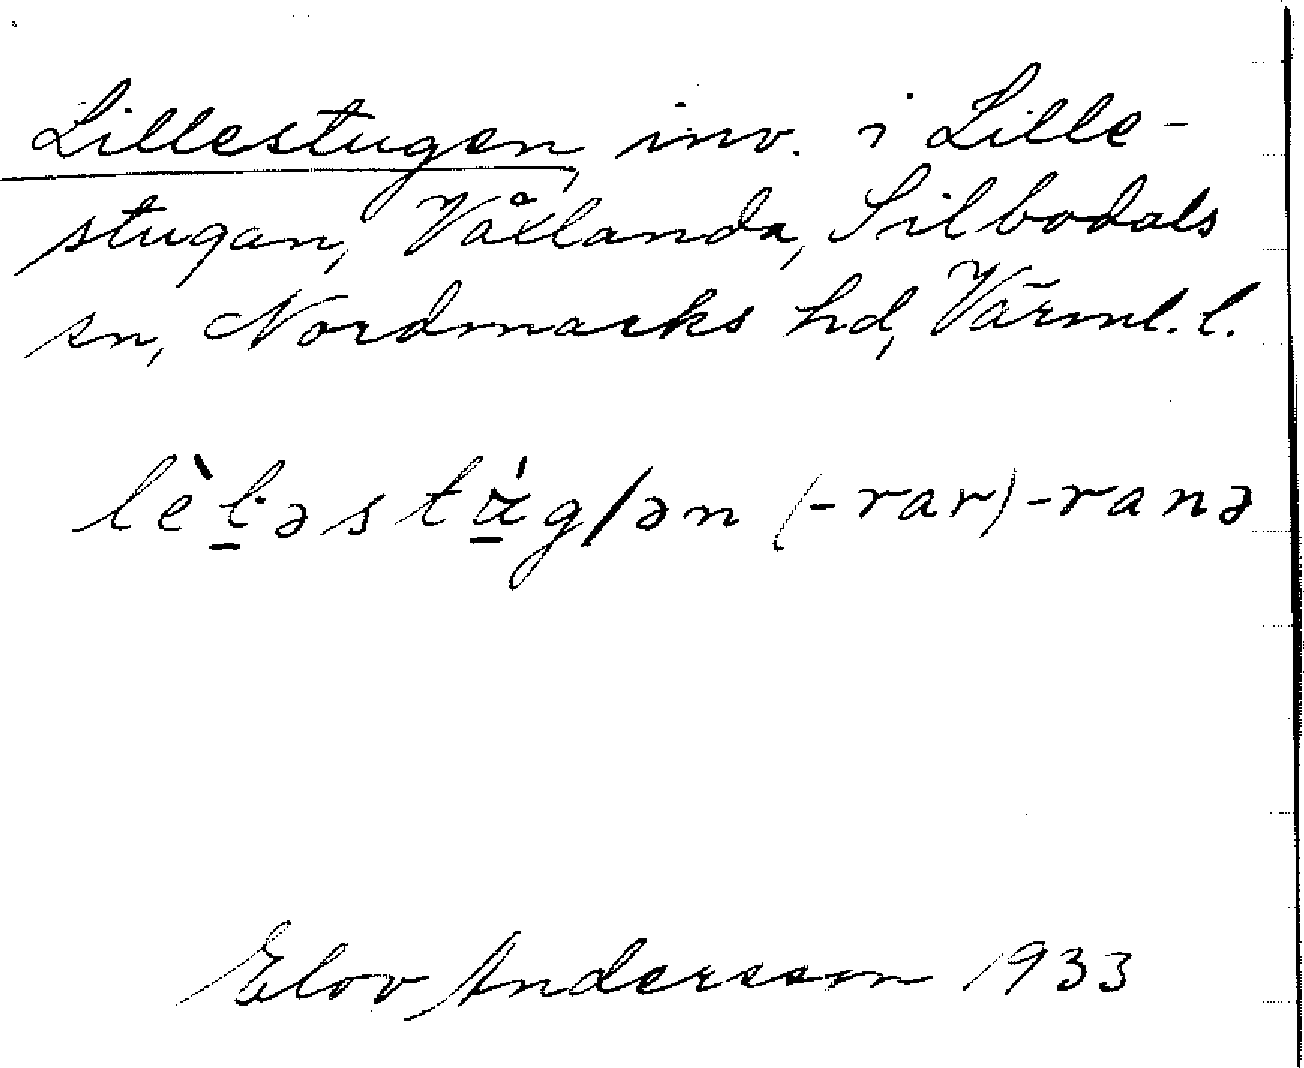 Lillestugen, inv. i Lille-
stugan, Vållanda, Silbodals
sn, Nordmarks hd, Värml. l.
lèl̠·əstɑ̠̈́g/ən (-rar) -ranə
Elov Andersson 1933